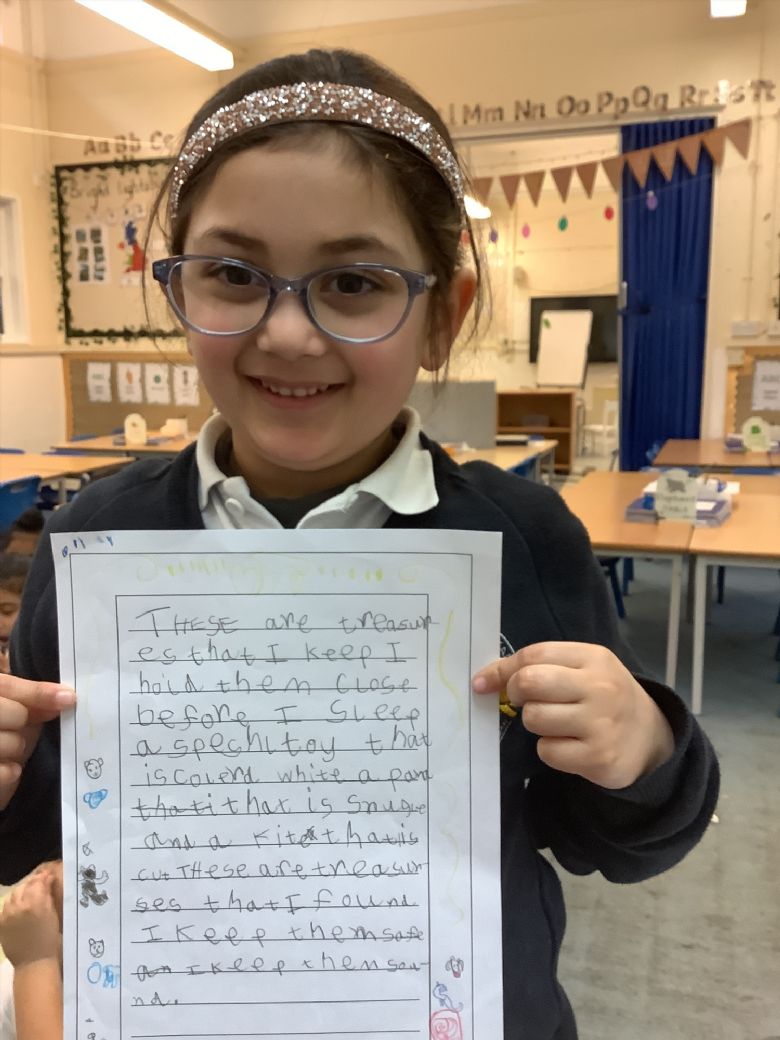 Aa Bb Cc
l Mm Nn Oo Pp Qq Rr Ss Tt
Bright
THESE are treasur
es that I keep I
hold them close
before I sleep
a spechl toy that
is colerd white a pand
thati that is snugle
and a kitet that is
cut THese are treasur
ses that I found
I keep them safe
an I keep them sou
nd.